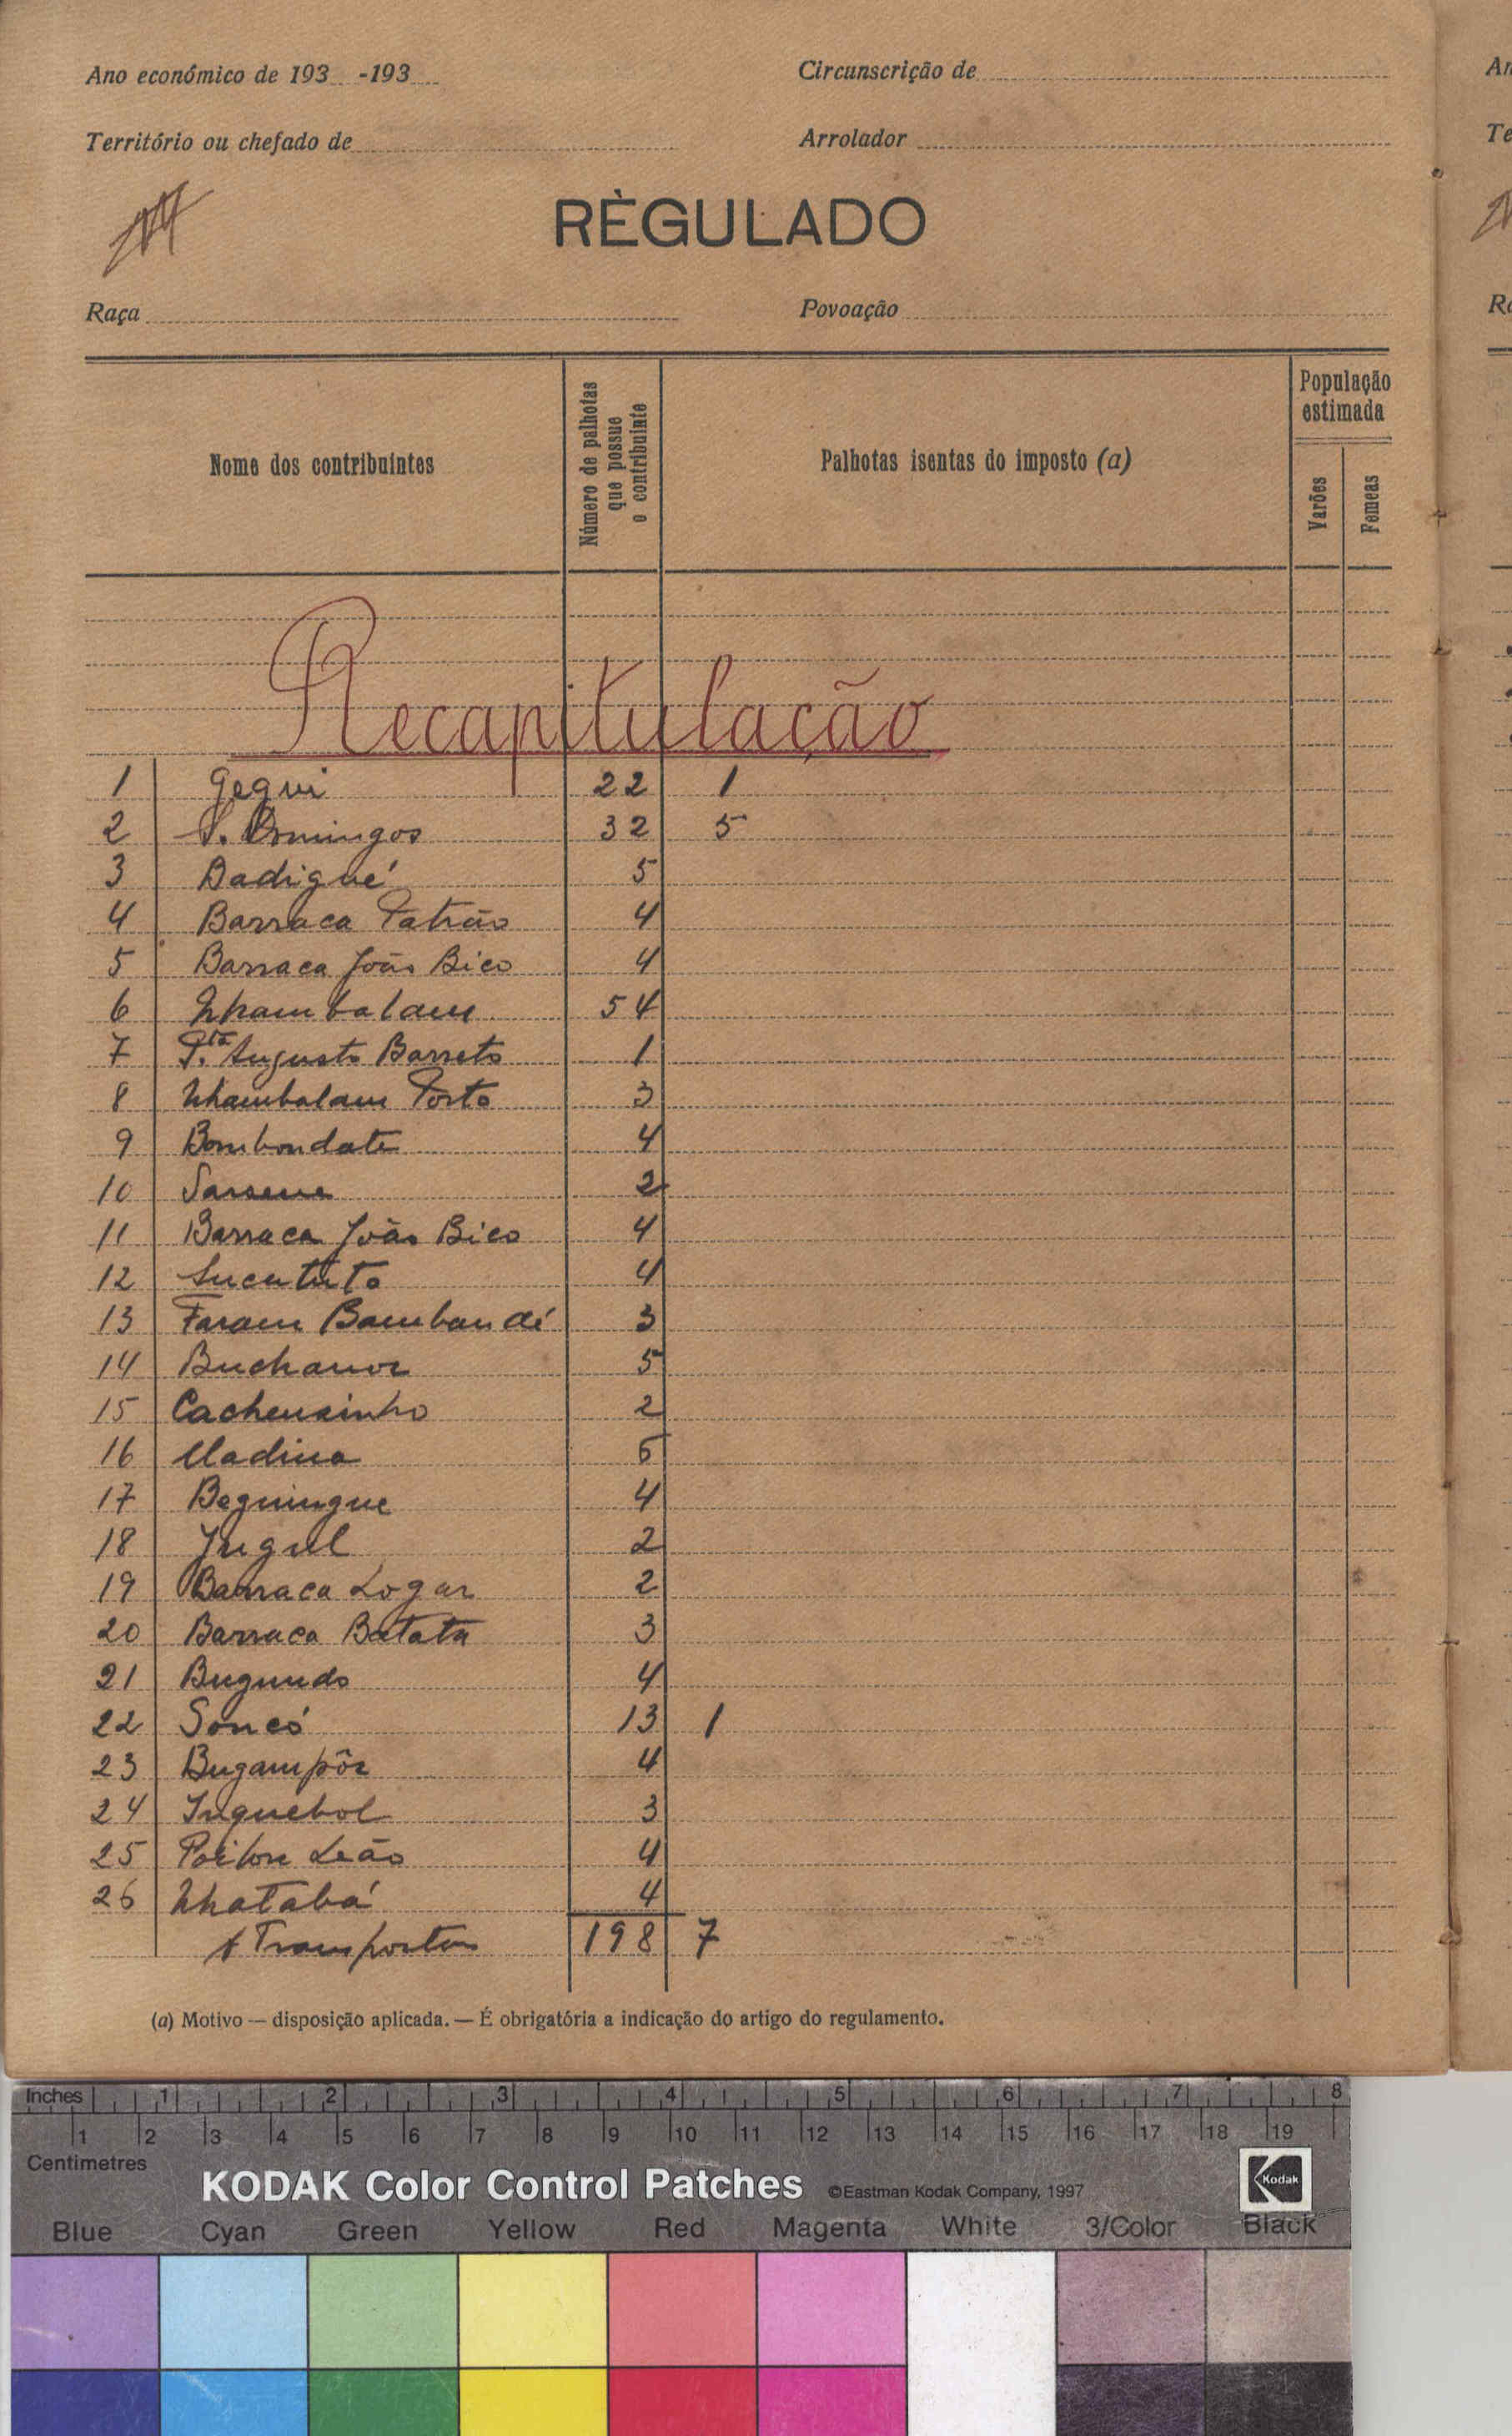 Ano económico de 193 -193
Circunscrição de
Território ou chefado de
Arrolador
RÈGULADO
Raça
Povoação
Nome dos contribuintes
Número de palhotas que possue o contribuinte
Palhotas isentas do imposto (a)
População estimada
Varões
Femeas
Recapitulação
1 Gegui 22 1
2 S. Domingos 32 5
3 Badigué 5
4 Barraca Patrão 4
5 Barraca João Bico 4
6 Nhambalam 54
7 P.ta Augusto Barreto 1
8 Nhambalam Porto 3
9 Bombondate 4
10 2
11 Barraca João Bico 4
12 Sucututo 4
13 Faram Bambandé 3
14 5
15 Cacheusinho 2
16 Madina 6
17 Beguingue 4
18 Jugul 2
19 Barraca Logar 2
20 Barraca Batata 3
21 Bugundo 4
22 Soncó 13 1
23 Bugampôr 4
24 Inguebol 3
25 Poilon Leão 4
26 Nhatabá 4
A Transportar 198 7
(a) Motivo — disposição aplicada. — É obrigatória a indicação do artigo do regulamento.
Inches 1 2 3 4 5 6 7 8
1 2 3 4 5 6 7 8 9 10 11 12 13 14 15 16 17 18 19
Centimetres
KODAK Color Control Patches ©Eastman Kodak Company, 1997 Kodak
Blue Cyan Green Yellow Red Magenta White 3/Color Black